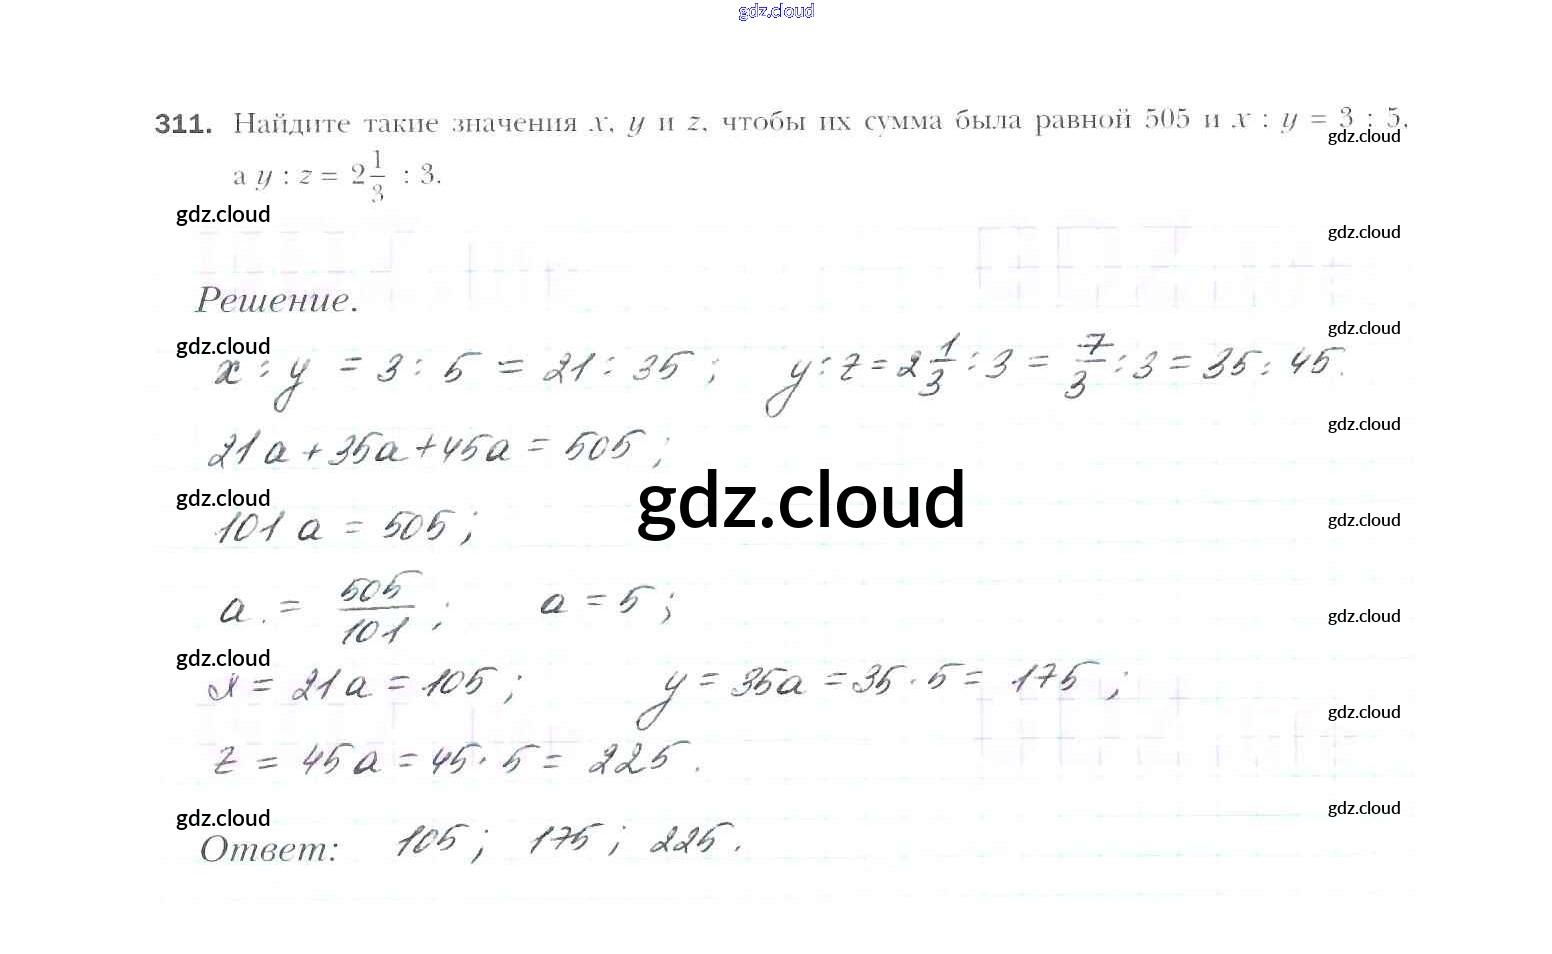 gdz.cloud
311. Найдите такие значения x, y и z, чтобы их сумма была равной 505 и x : y = 3 : 5,
gdz.cloud
а y : z = 2 1/3 : 3.
gdz.cloud
gdz.cloud
Решение.
gdz.cloud
gdz.cloud
x : y = 3 : 5 = 21 : 35 ; y : z = 2 1/3 : 3 = 7/3 : 3 = 35 : 45.
gdz.cloud
21a + 35a + 45a = 505 ;
gdz.cloud
gdz.cloud
101 a = 505 ;
gdz.cloud
a = 505/101 ; a = 5 ;
gdz.cloud
gdz.cloud
x = 21a = 105 ; y = 35a = 35 · 5 = 175 ;
gdz.cloud
z = 45a = 45 · 5 = 225 .
gdz.cloud
gdz.cloud
Ответ: 105 ; 175 ; 225 .